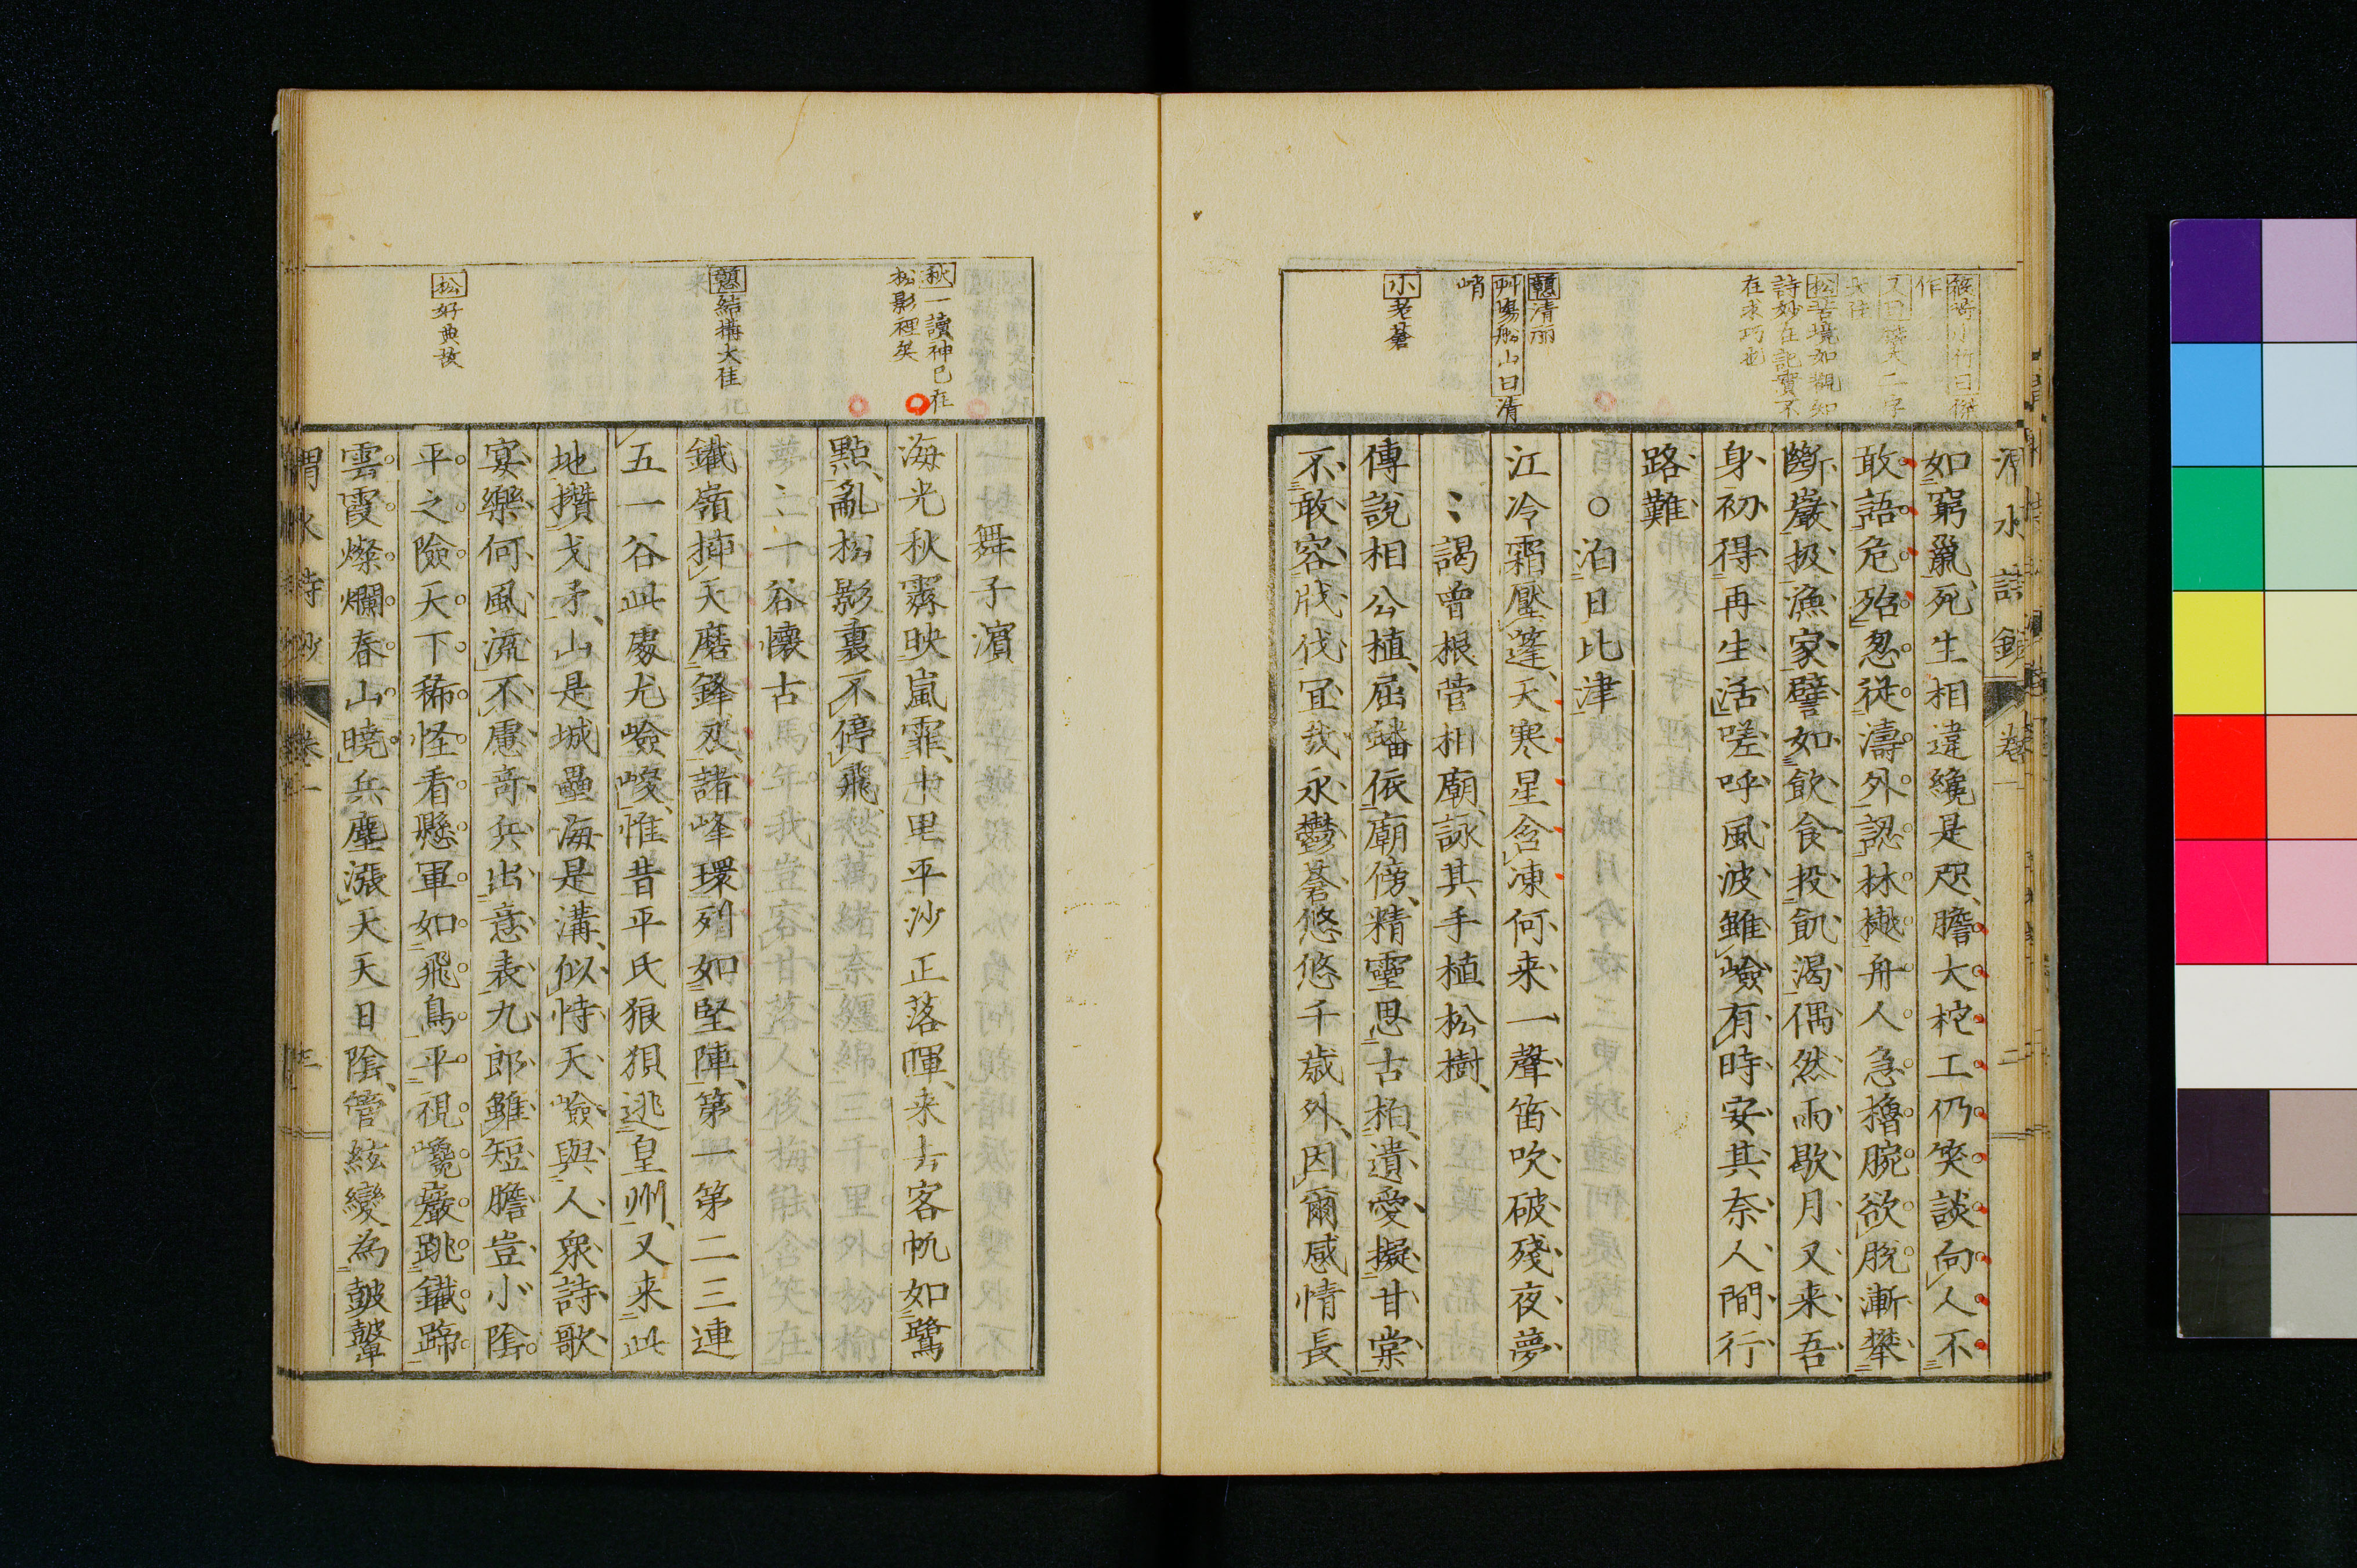 如窮鼠死生相違纔是咫膽大柁工仍笑談向人不
敢語危殆忽從濤外認林樾舟人急櫓腕欲脫漸攀
斷巖扱漁家譬如飲食投飢渴偶然雨歇月又来吾
身初得再生活嗟呼風波雖嶮有時安其奈人間行
路難
○泊日比津
江冷霜壓篷天寒星含凍何来一聲笛吹破殘夜夢
謁曾根菅相廟詠其手植松樹
傳說相公植屈蟠依廟傍精靈思古柏遺愛擬甘棠
不敢容戕伐宜哉永鬱蒼悠悠千歳外因爾感情長
憩清丽
艸場船山曰清
峭
小老蒼
松苦境如觀知
詩妙在記實不
在求巧也
卷一
二
舞子濱
海光秋霽映嵐霏十里平沙正落暉来去客帆如鷺
點亂松影裏不停飛
一谷懷古
鐵嶺揷天磨鋒刄諸峰環列如堅陣第一第二三連
五一谷此處尤嶮峻惟昔平氏狼狽逃皇州又来此
地攢戈矛山是城壘海是溝似恃天嶮與人衆詩歌
宴樂何風流不慮奇兵出意表九郎雖短膽豈小陰
平之險天下稀怪看懸軍如飛鳥平視巉巖跳鐵蹄
雲霞燦爛春山曉兵塵漲天天日陰管絃變為鼓鼙
秋一讀神已在
松影裡矣
憩結構大佳
松好典故
渭水詩鈔
卷一
三